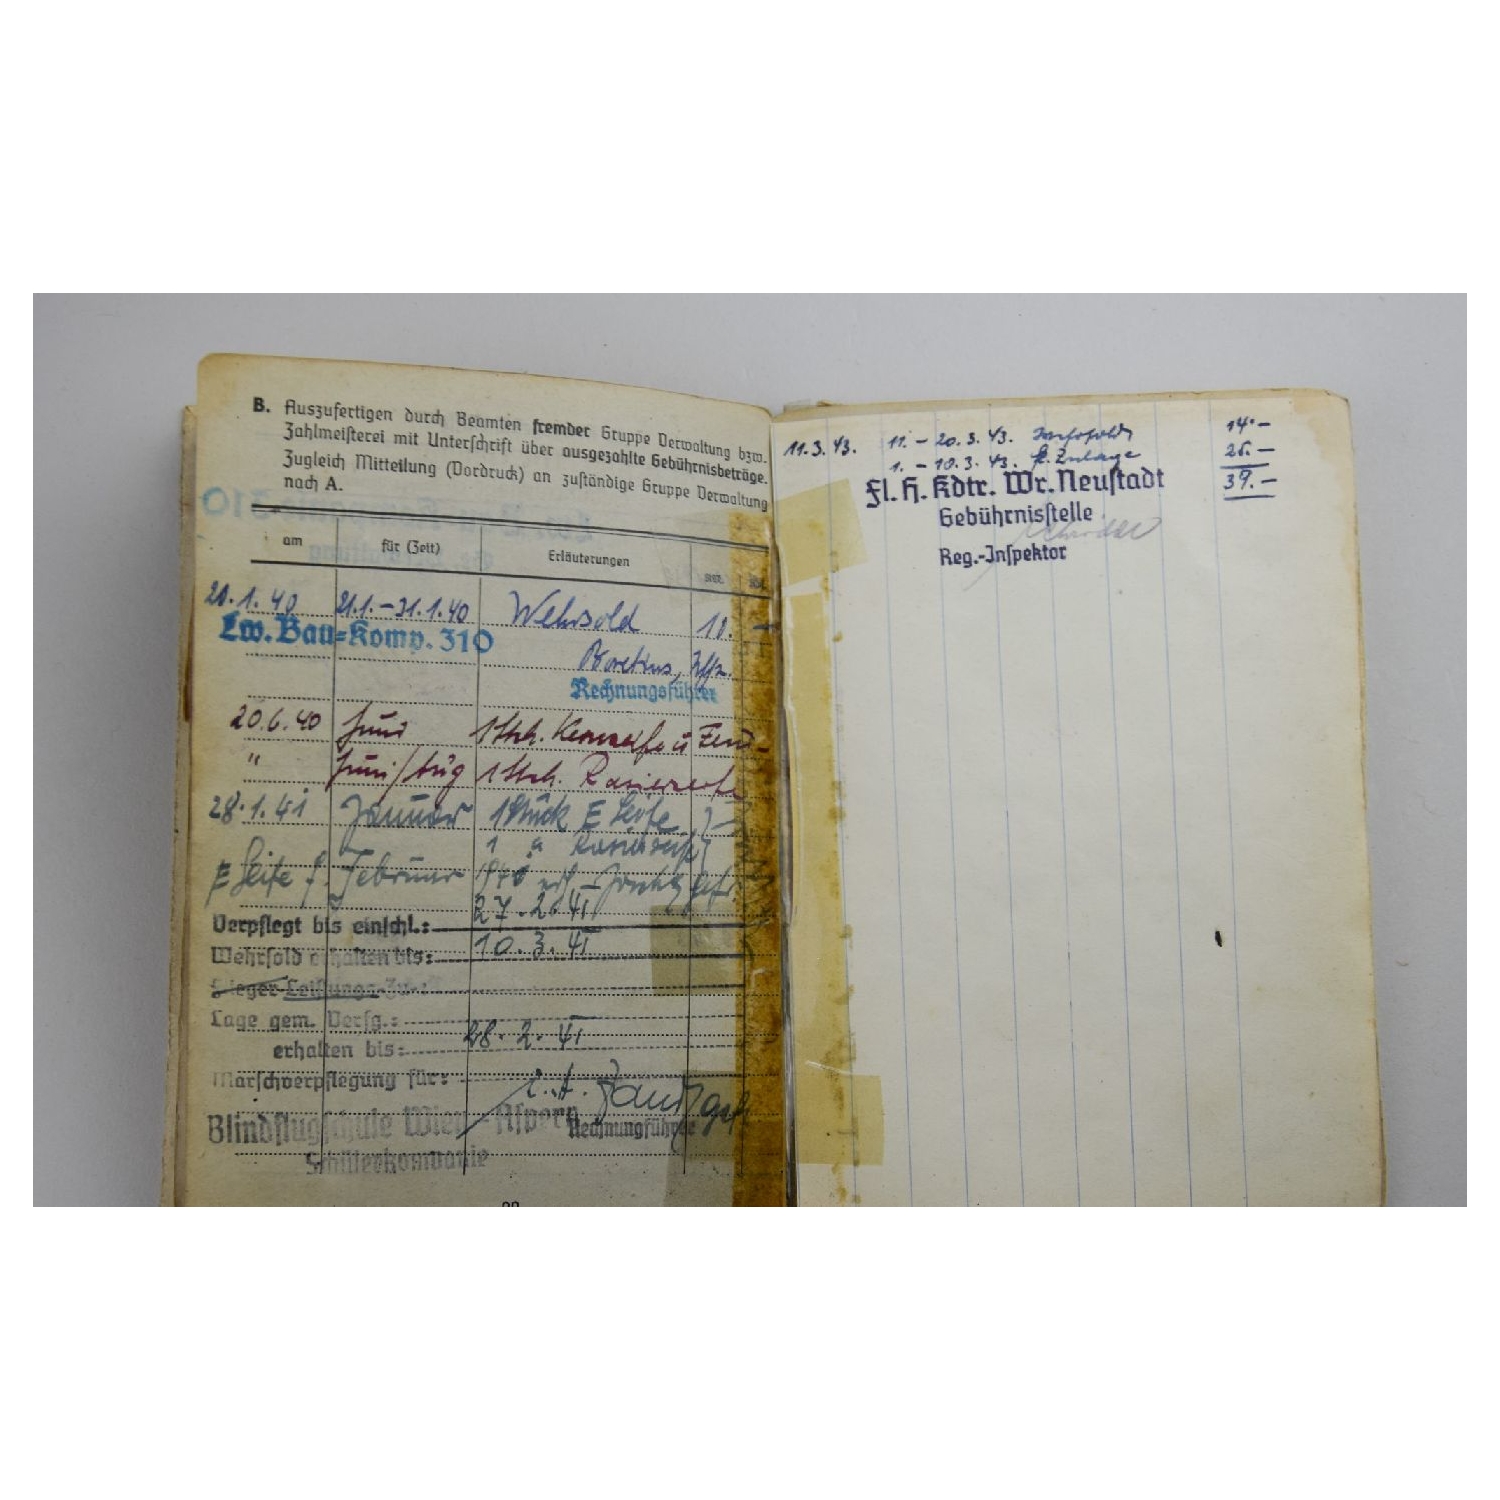 B. Auszufertigen durch Beamten fremder Gruppe Verwaltung bzw.
Zahlmeisterei mit Unterschrift über ausgezahlte Gebührnisbeträge.
Zugleich Mitteilung (Vordruck) an zuständige Gruppe Verwaltung
nach A.
am für (Zeit) Erläuterungen
21.1.40 21.1.-31.1.40 Wehrsold 10. -
Lw. Bau=Komp. 310
Rechnungsführer
20.6.40 Juni 1 Stck.
" Juni/Aug 1 Stck.
28.1.41 Januar 1 Stück E Seife
1 "
E Seife f. Februar
27.2.41
Verpflegt bis einschl.:
10.3.41
Wehrsold erhalten bis:
Lage gem. Verfg.:
28.2.41
erhalten bis:
Marschverpflegung für:
Blindflugschule Wien-Aspern
Rechnungsführer
Schülerkompanie
11.3.43. 11.-20.3.43. Wehrsold 14.-
1.-10.3.43. Zulage 25.-
39.-
Fl. H. Kdtr. Wr. Neustadt
Gebührnisstelle
Reg.-Inspektor